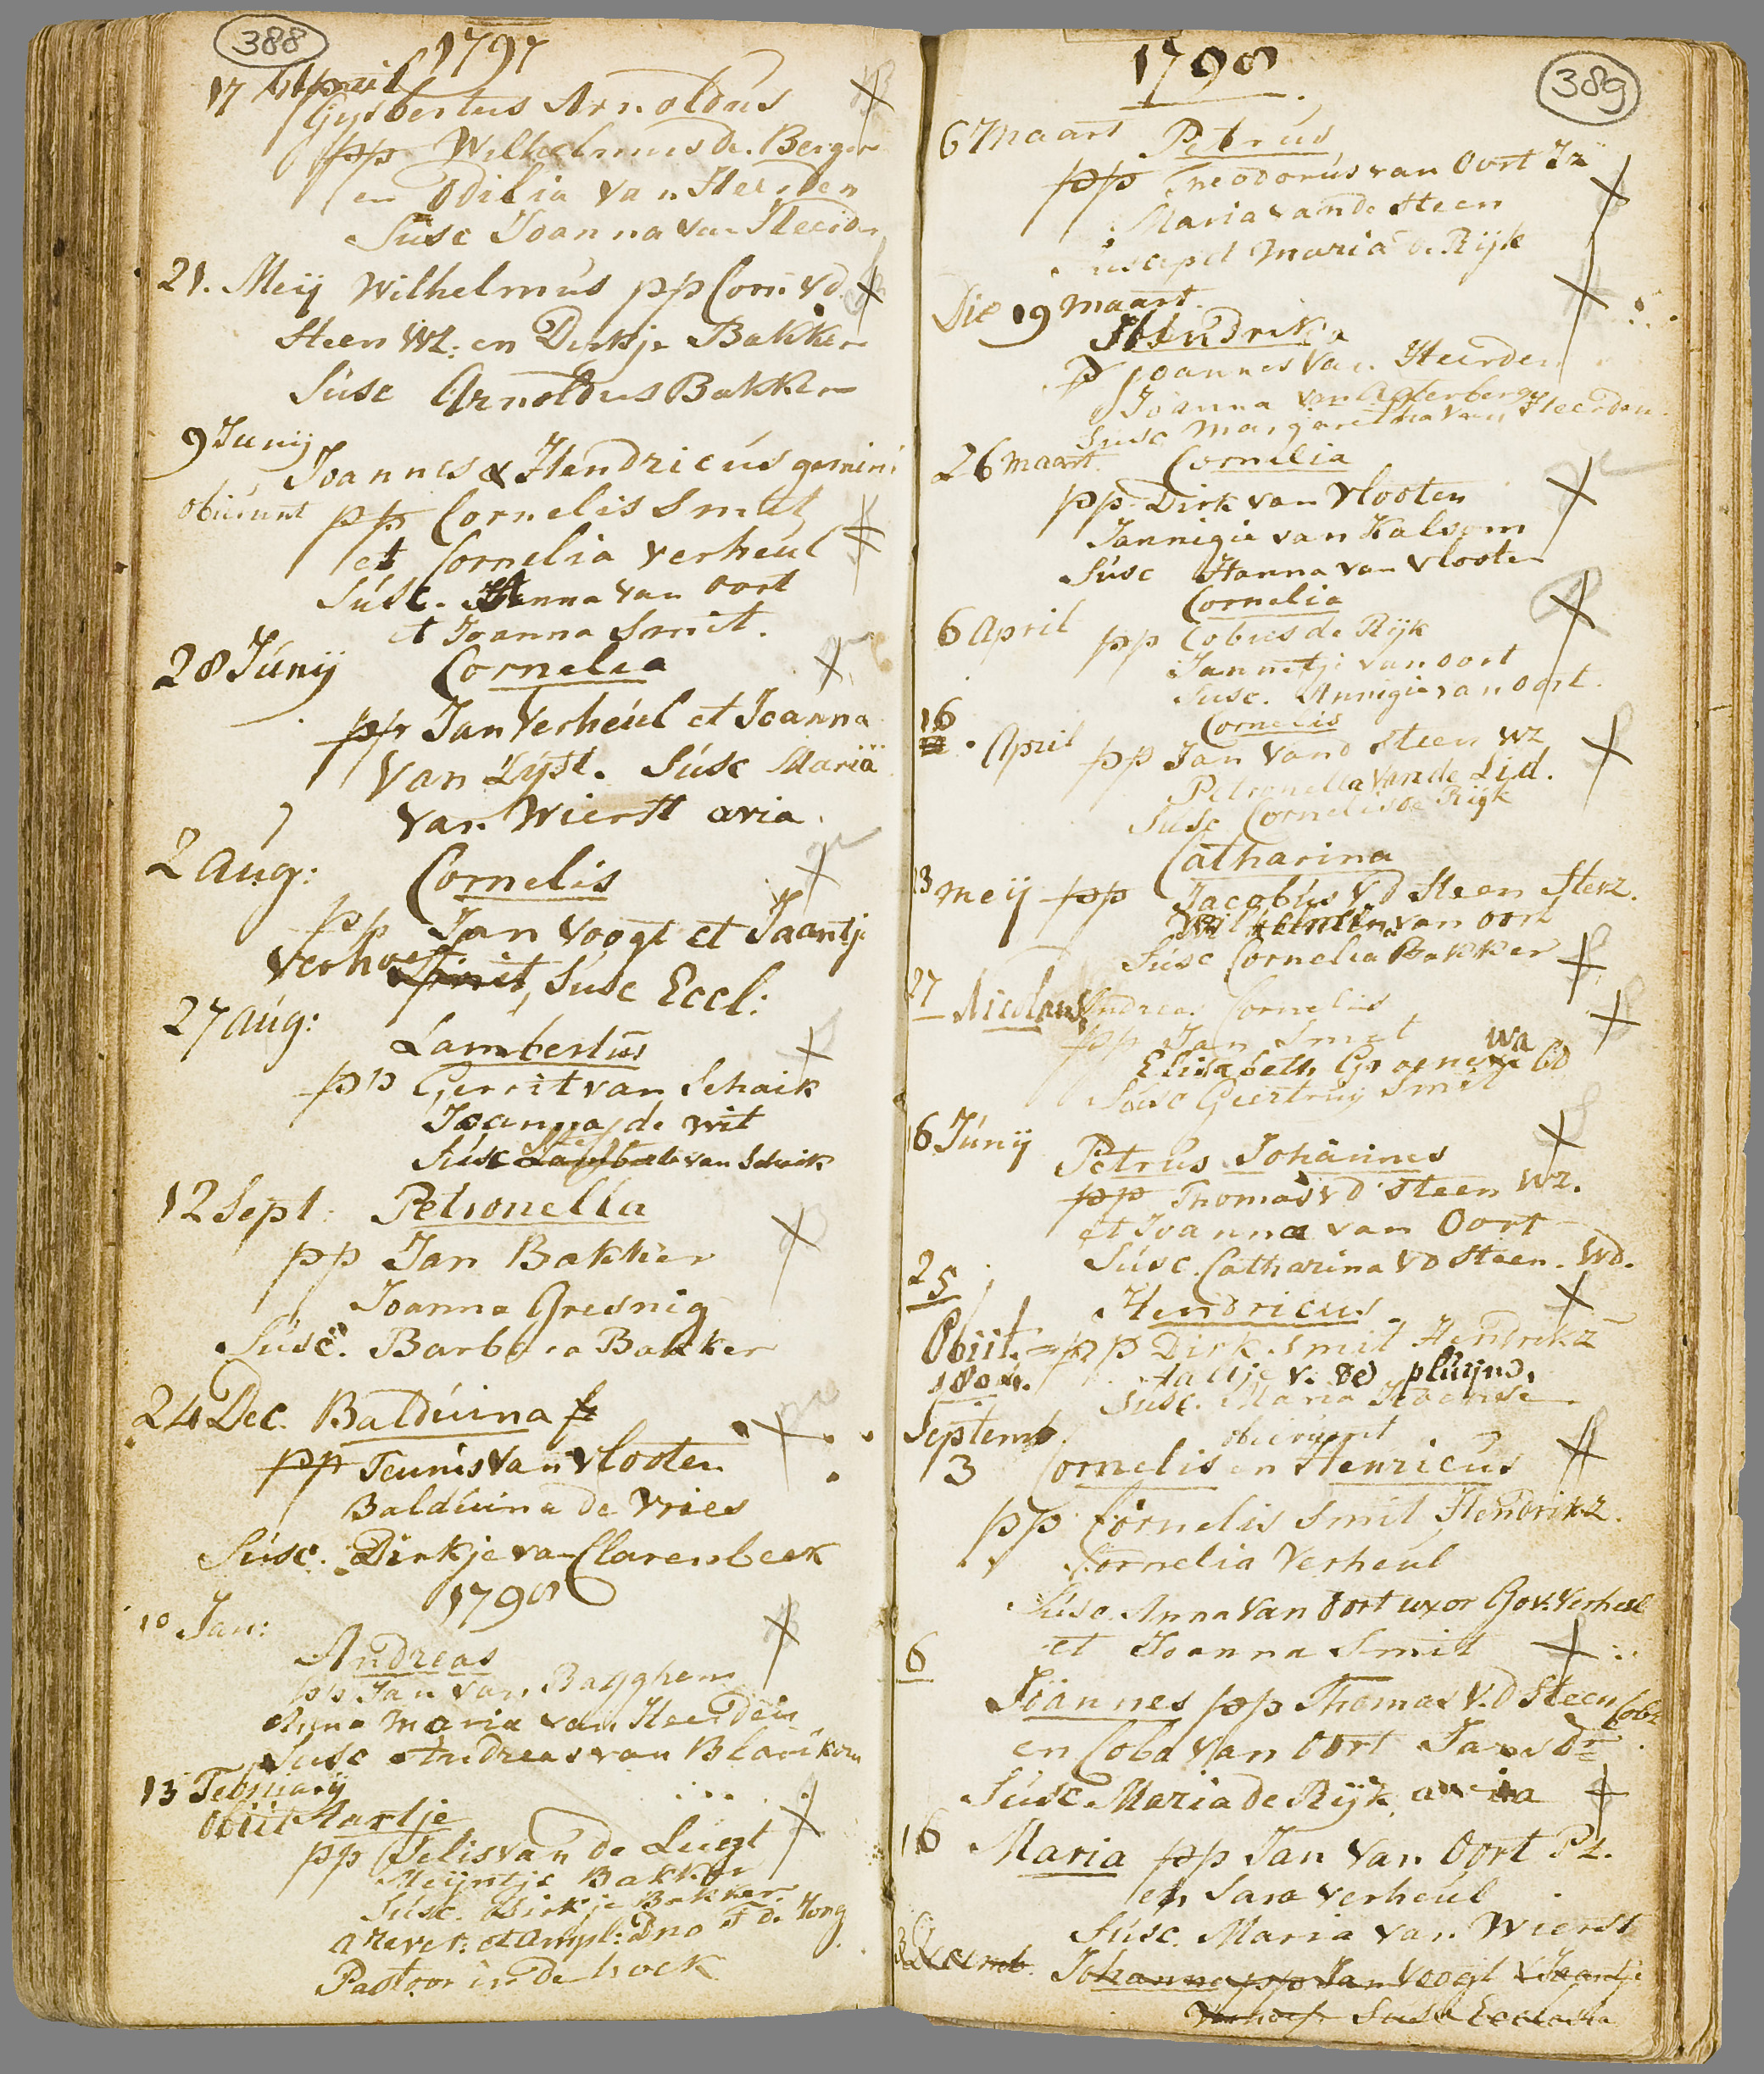 388
1797
17 April
Gysbertus Arnoldus
pp Wilhelmus de Berger
en Odilia van Heerden
Susc Joanna van Heerde
21. Meij Wilhelmus pp Corn: vd.
Steen Wz: en Dirkje Bakker
Susc Arnoldus Bakker
9 Junij
Joannes & Hendricus gemini
obierunt pp Cornelis Smit
et Cornelia Verheul
Susc. Anna van Oort
et Joanna Smit.
28 Junij Cornelea
pp Jan Verheul et Joanna
van Lijst. Susc Maria
van Wierst avia.
2 aug: Cornelis
pp Jan Voogt et Jaantje
Verhoef Smit, Susc Eccl:
27 aug:
Lambertus
pp Gerrit van Schaik
Joanna de wit
Susc van Schaik
12 Sept: Petronella
pp Jan Bakker
Joanna Gresnig
Susc. Barbara Bakker
24 Dec. Balduina
pp Teunis van Vlooten
Balduina de Vries
Susc. Dirkje van Clarenbeek
1798
10 Jan:
Andreas
pp Jan van Bagghem
Anna Maria van Heerden
Susc Andreas van Blarikom
13 Februarij
Obiit Aartje
pp Jelis van de Luigt
Meijntje Bakker
Susc. Dirkje Bakker
a Rever: et Ampl: Dno F de Jong
Pastoor in de hoek
389
1798
6 Maart Petrus
pp Theodorus van Oort Jz
Maria van de Steen
Suscepit Maria de Rijk
Die 19 maart.
Hendrika
p Joannes van Heerden
Joanna van Aalerberg
Susc Margaretha van Heerden
26 maart. Cornelia
pp Dirk van Vlooten
Jannigie van Kalsom
Susc Hanna van Vlooten
Cornelia
6 April pp Cobus de Rijk
Jannetje van oort
Susc. Annigie van Oort.
16 Cornelis
April pp Jan vand Steen wz
Petronella van de Lid.
Susc Cornelis de Rijk
Catharina
13 meij pp Jacobus vd Steen Stevz.
van oort
Susc Cornelia Bakker
27 Nicolaus Andrea Cornelis
pp Jan Smit
wa
Elisabeth Groene ld
Susc Geertruy Smit
16 Junij
Petrus Johannes
pp Thomas vd Steen wz.
et Joanna van Oort
Susc. Catharina vd Steen. Wd.
25
Hendricus
Obiit pp Dirk Smit Hendrikz
1804. Aaltje v. de pluijm.
Susc. Maria
Septemb. obierunt
3 Cornelis en Henricus
pp Cornelis Smit Hendrikz.
Cornelia Verheul
Susc. Anna van Oort uxor Gov: Verheul
et Joanna Smit
6
Joannes pp Thomas v.d Steen Cobz
en Coba van Oort Jansdr
Susc Maria de Rijk avia
16 Maria pp Jan van Oort Pz.
en Sara verheul
Susc. Maria van Wierst
Decemb. Johanna pp Jan Voogt & Jaantje
Verhoef Susc Ecclesia